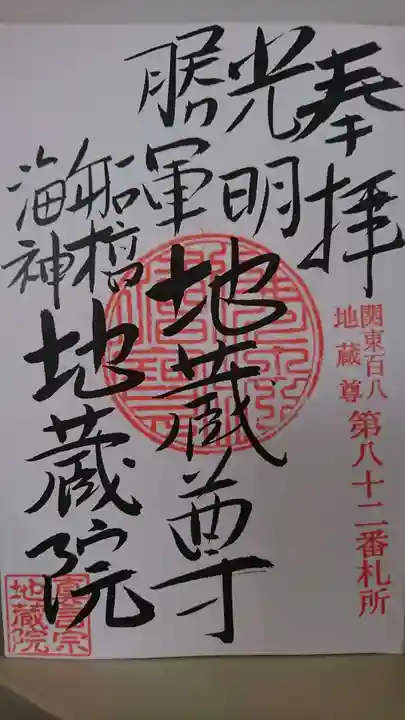 奉拝
関東百八
地蔵尊
第八十二番札所
光明
勝軍
地蔵尊
船橋
海神
地蔵院
真言宗
地蔵院